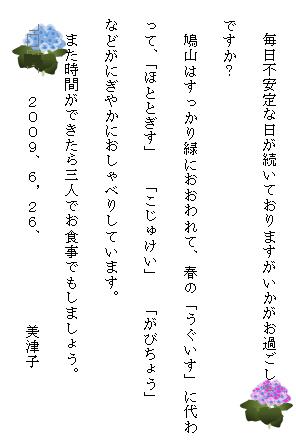 毎日不安定な日が続いておりますがいかがお過ごし
ですか？
鳩山はすっかり緑におおわれて、春の「うぐいす」に代わ
って、「ほととぎす」　「こじゅけい」　「がびちょう」
などがにぎやかにおしゃべりしています。
また時間ができたら三人でお食事でもしましょう。
２００９、６，２６、
美津子